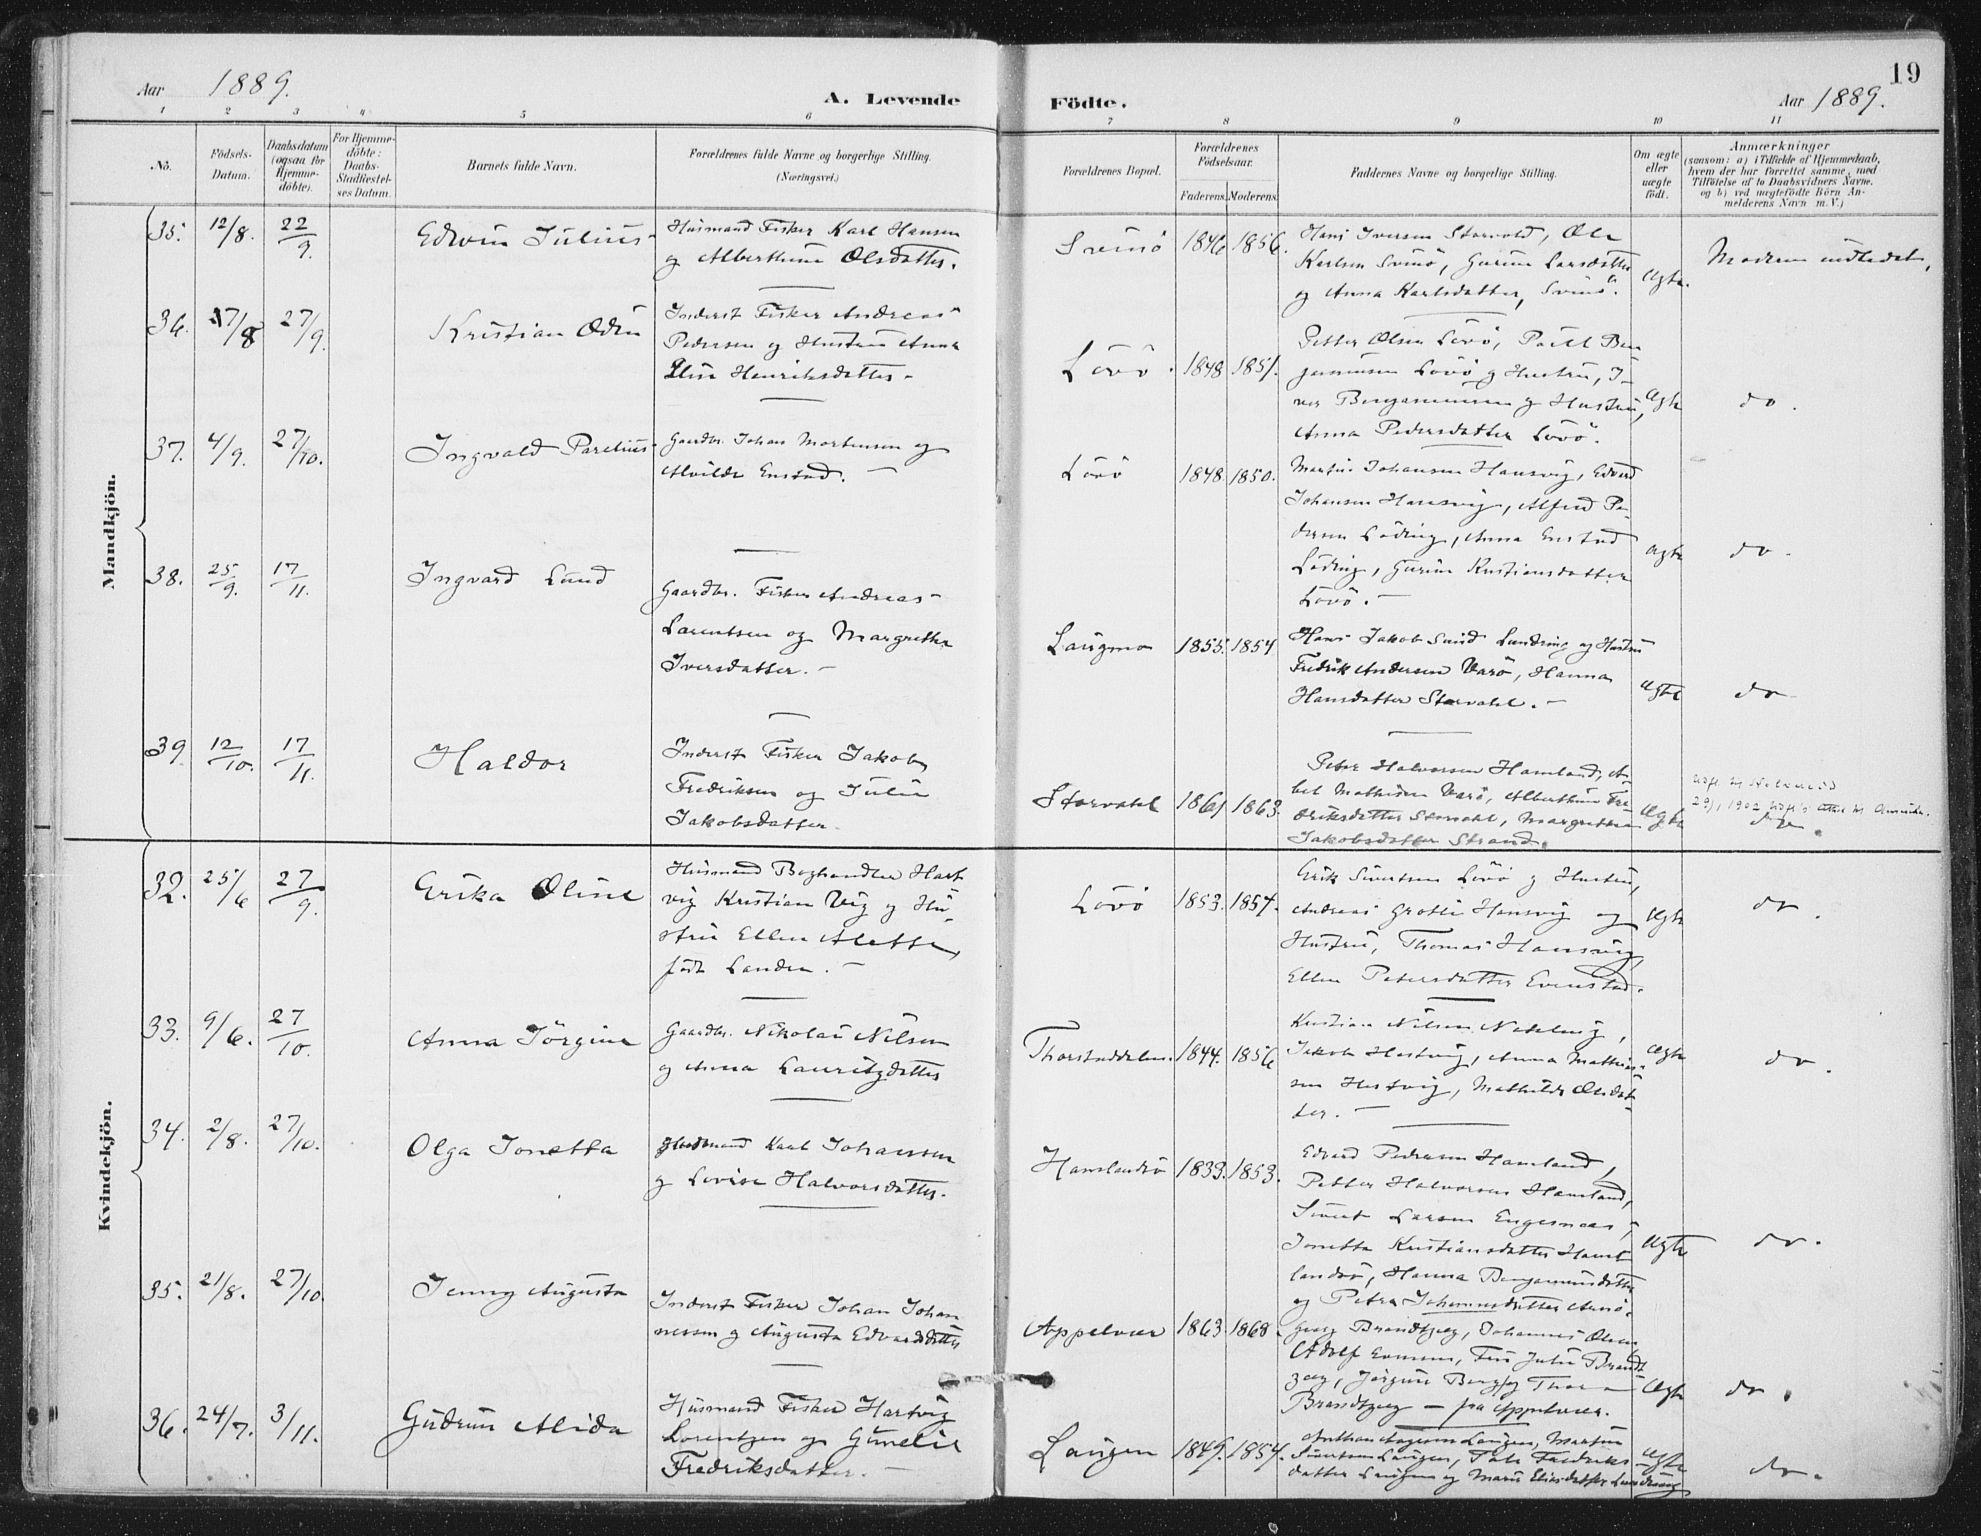 19
Aar 1889.
A. Levende Födte.
Aar 1889.
1 2 3 4 5 6 7 8 9 10 11
No.
Födsels-Datum.
Daabsdatum (ogsaa for Hjemmedöbte).
For Hjemmedöbte: Daabs-Stadfæstelses Datum.
Barnets fulde Navn.
Forældrenes fulde Navne og borgerlige Stilling. (Næringsvei.)
Forældrenes Bopæl.
Forældrenes Födselsaar.
Faderens. Moderens.
Faddernes Navne og borgerlige Stilling.
Om ægte eller uægte födt.
Anmærkninger
(saasom: a) i Tilfælde af Hjemmedaab,
hvem der har forrettet samme, med
Tilföielse af to Daabsvidners Navne.
og b) ved uægtefödte Börn An-
melderens Navn m. V.)
Mandkjön.
35. 12/8. 22/9. Edvin Julius
Husmand Fisker Karl Hansen
og Alberthine Olsdatter.
Svinö 1846 1856.
Hans Iversen Storvold, Ole
Karlsen Svinö, Gurine Larsdatter
og Anna Karlsdatter, Svinö.
Ægte.
Moderen indledet.
36. 17/8 27/9. Kristian Odin
Inderst Fisker Andreas
Pedersen og Hustru Anna
Elise Henriksdatter
Lövö. 1848 1851.
Petter Olsen Lövö, Poul Ben
jaminsen Lövö og Hustru, I-
ver Benjaminsen og Hustru,
Anna Pedersdatter Lövö.
Ægte do.
37. 4/9. 27/10. Ingvald Parelius
Gaardbr. Johan Mortensen og
Alvilde Enstad.
Lövö 1848. 1850.
Johansen Hansvig, Edvard
Johansen Hansvig, Alfred Pe-
dersen Löding, Anna Enstad
Löding, Gurine Kristiansdatter
Lövö.
Ægte do.
38. 25/9. 17/11. Ingvard Lund
Gaardbr. Fisker Andreas
Larentsen og Margrethe
Iversdatter.
Laugmo 1855. 1854
Hans Jakob Lund Lundring og Hustru
Fredrik Andersen Varö, Hanna
Hansdatter Storvahl.
Ægte do
39 12/10. 17/11. Haldor
Inderst Fisker Jakob
Fredriksen og Julie
Jakobsdatter.
Storvahl 1861 1863.
Peter Halvorsen Hamland, A-
bel Mathisen Varö, Alberthine Fre-
driksdatter Storvahl, Margrethe
Jakobsdatter Strand.
Ægte
1902
do.
Kvindekjön.
32. 25/6 27/9. Erika Oline
Husmand Boghandler Hart
vig Kristian Vig og Hu-
stru Ellen Alette,
födt Landen.
Lövö 1853. 1854.
Erik Sivertsen Lövö og Hustru,
Andreas Hansvig og
Hustru, Thomas Hansvig,
Ellen Petersdatter Evenstad.
Ægte do.
33. 9/6. 27/10. Anna Jörgine
Gaardbr. Nikolai Nilsen
og Anna Lauritzdatter
1844. 1856
Kristian Nilsen,
Jakob Hestvig, Anna Mathias-
sen Hestvig, Mathilde Olsdat-
ter.
Ægte do.
34. 2/8. 27/10. Olga Jonetta
Husmand Karl Johansen
og Lovise Halvorsdatter.
Hamlandsö 1833. 1853.
Edvard Pedersen Hamland,
Petter Halvorsen Hamland,
Sivert Larsen Engesnæs,
Jonetta Kristiansdatter Ham-
landsö, Hanna Benjaminsdatter
og Petra Johannesdatter
Ægte do.
35. 21/8. 27/10. Jenny Augusta
Inderst Fisker Johan Johan
nessen og Augusta Edvardsdatter
Appelvær 1863. 1868.
Georg Brandtzæg, Johannes Olsen,
Adolf Evensen, Julie Brandt
zæg, Jörgine Berg og Thora
Brandtzæg — fra Appelvær.
Ægte do.
36. 24/7. 3/11. Gudrun Alida
Husmand Fisker Hartvig
Lorentzen og Gunelie
Fredriksdatter.
Laugen 1849. 1854.
Anthon Aagesen Laugen, Martin
Sivertsen Laugen, Fredriks-
datter Laugen og Marie Eliasdatter Lundring
Ægte do.